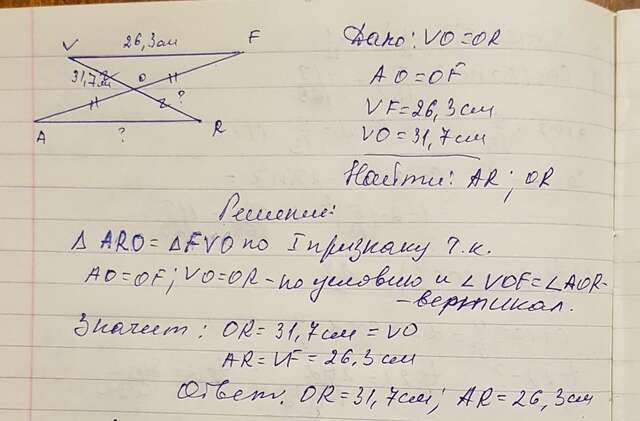 V 26,3см F
31,7см O
?
A ? R
Дано: VO=OR
AO=OF
VF=26,3см
VO=31,7см
Найти: AR; OR
Решение:
Δ ARO=ΔFVO по I признаку т.к.
AO=OF; VO=OR-по условию и ∠VOF=∠AOR-
-вертикал.
Значит: OR=31,7см=VO
AR=VF=26,3см
Ответ. OR=31,7см; AR=26,3см